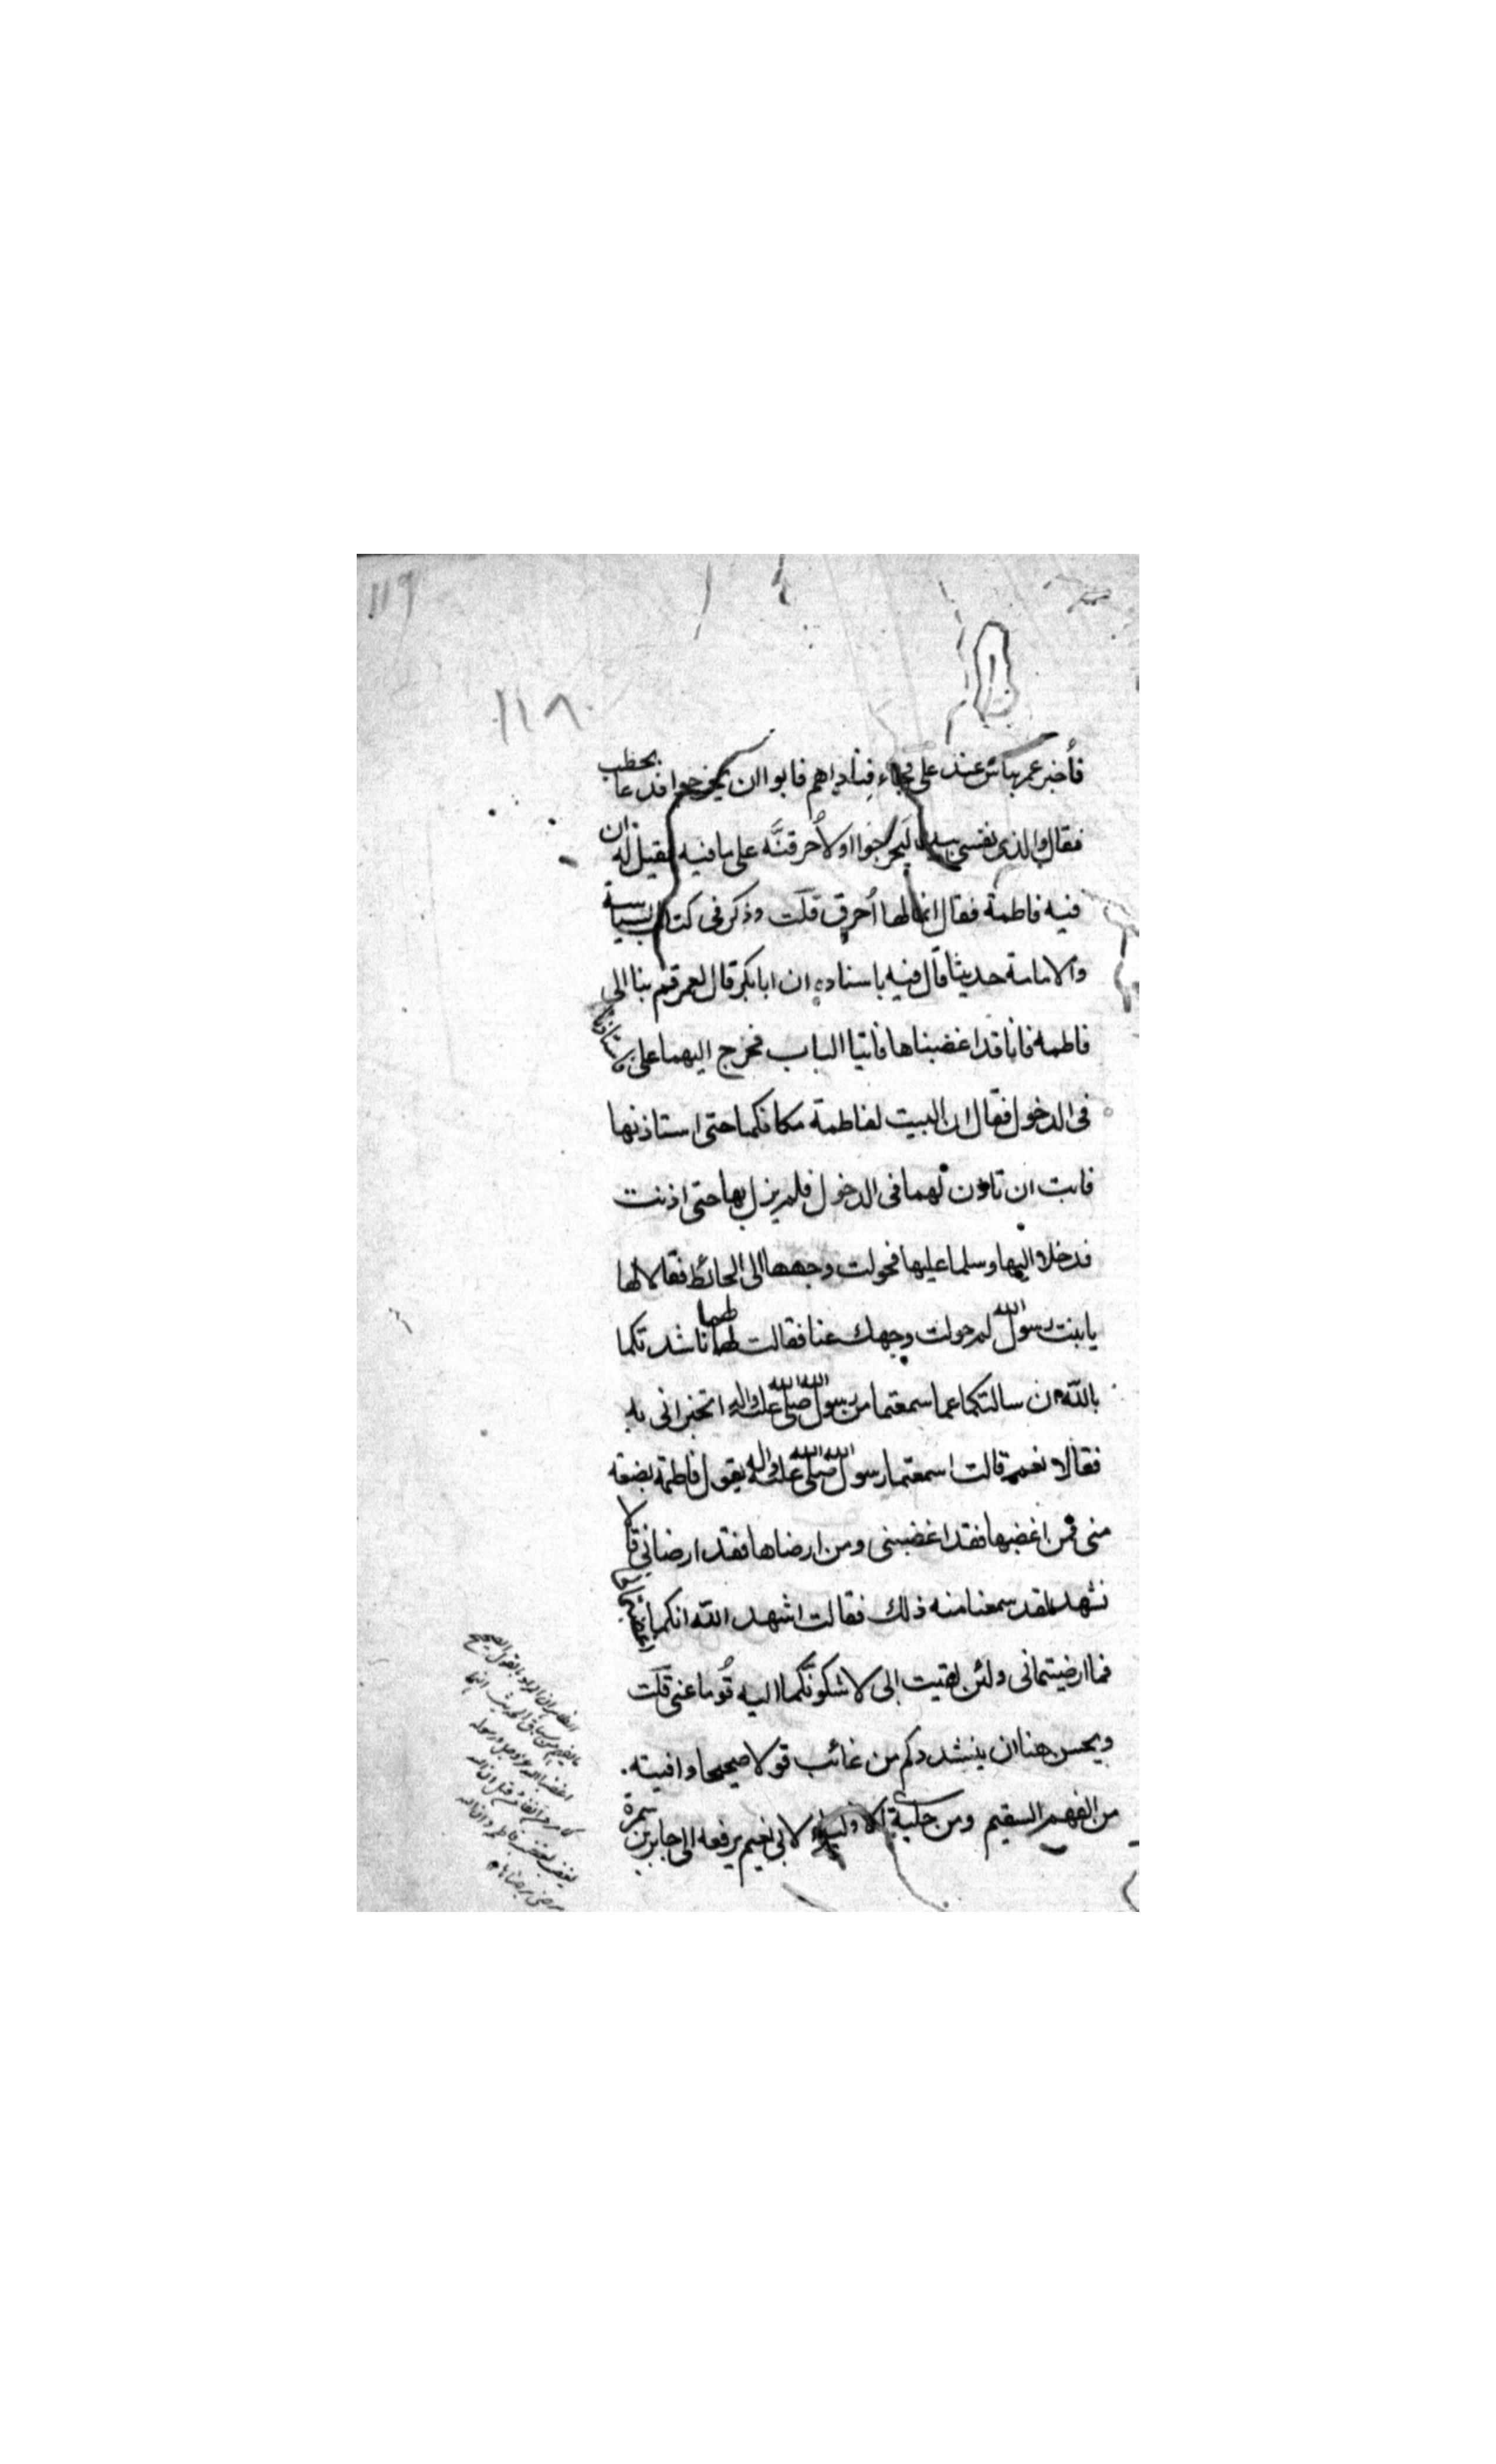 ١١٩
١١٨
فأخبر عمر بناس عند على فجاء فناداهم فابوا ان يخرجوا فدعا بحطب
فقال والذى نفسى بيده لَيَخرجوا اولأُحرقنَّه على ما فيه فقيل له ان
فيه فاطمة فقال انما لها أُحرق قلت وذكر فى كتاب السياسة
والامامة حديثا قال فيه باسناده ان ابا بكر قال لعمر قم بنا الى
فاطمه فانا قد اغضبناها فاتيا الباب فخرج اليهما على فاستاذنا
فى الدخول فقال ان البيت لفاطمة مكانكما حتى استاذنها
فابت ان تاذن لهما فى الدخول فلم يزل بها حتى اذنت
فدخلا اليها وسلما عليها فحولت وجهها الى الحائط فقالا لها
يا بنت رسول الله لم حولت وجهك عنا فقالت لهما ناشدتكما
بالله ان سالتكما عما سمعتما من رسول الله صلى الله عليه واله اتخبرانى به
فقالا نعم قالت اسمعتما رسول الله صلى الله عليه واله يقول فاطمة بضعة
منى فمن اغضبها فقد اغضبنى ومن ارضاها فقد ارضانى قالا
نشهد لقد سمعنا منه ذلك فقالت اشهد الله انكما اغضبتمانى
فما ارضيتمانى ولئن بقيت إلى لاشكونّكما اليه قُوما عنى قلت
ويحسن هنا ان ينشد وكم من عائب قولا صحيحا وافيته
من الفهم السقيم ومن حلية الاولياء لابى نعيم يرفعه الى جابر بن سمرة
الظاهر ان المراد بالقول الصحيح